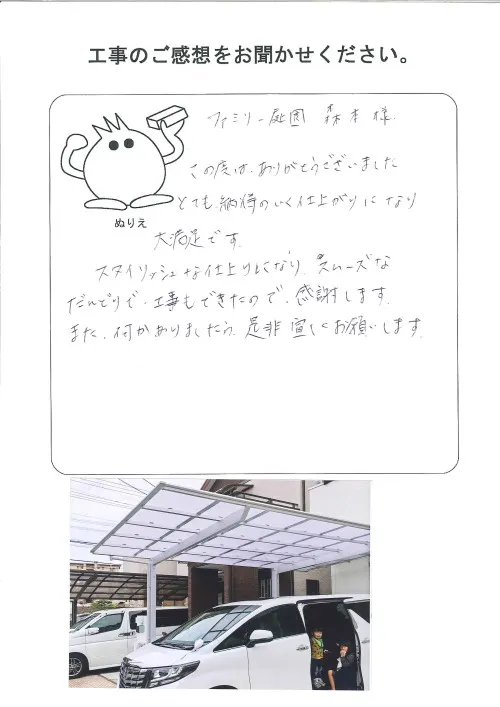 工事のご感想をお聞かせください。
ファミリー庭園 森本様
この度は、ありがとうございました
とても納得のいく仕上がりになり
ぬりえ
大満足です。
スタイリッシュな仕上りとなり、スムーズな
だんどりで、工事もできたので、感謝します。
また、何かありましたら、是非宜しくお願いします。